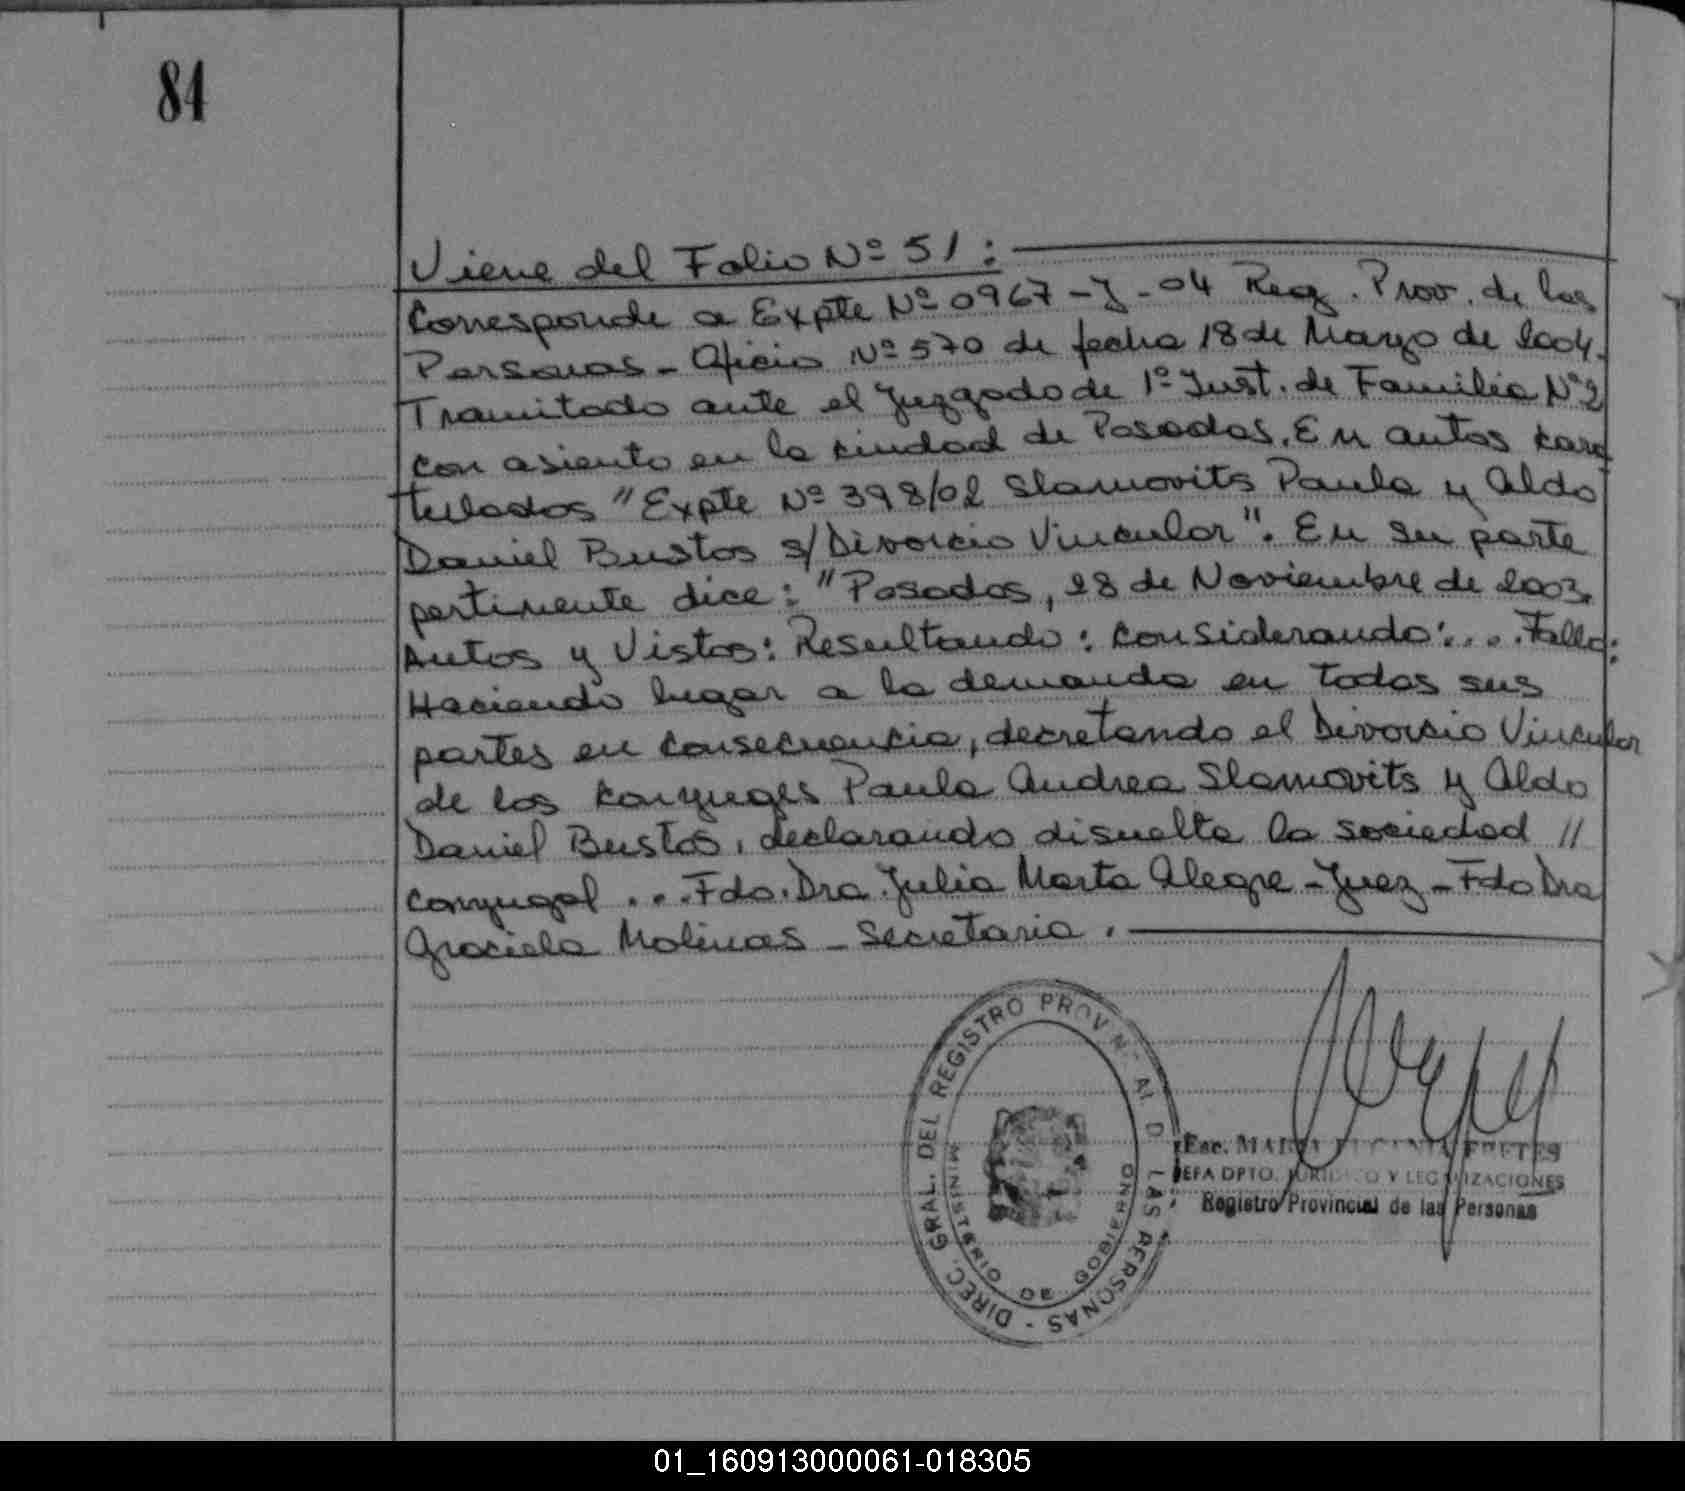 84
Viene del Folio Nº 51:
Corresponde a Expte Nº 0967-J-04 Reg. Prov. de las
Personas - Oficio Nº 570 de fecha 18 de Marzo de 2004.
Tramitado ante el Juzgado de 1º Inst. de Familia Nº2
con asiento en la ciudad de Posadas. En autos cara
tulados "Expte Nº 398/02 Slamovits Paula y Aldo
Daniel Bustos s/Divorcio Vincular". En su parte
pertinente dice: "Posadas, 28 de Noviembre de 2003.
Autos y Vistos: Resultando: Considerando:.... Fallo:
Haciendo lugar a la demanda en todas sus
partes en consecuencia, decretando el Divorcio Vincular
de los conyuges Paula Andrea Slamovits y Aldo
Daniel Bustos, declarando disuelta la sociedad //
conyugal ... Fdo. Dra Julia Marta Alegre - Juez - Fdo Dra
Graciela Molinas - Secretaria.
DIREC. GRAL. DEL REGISTRO PROVINCIAL DE LAS PERSONAS -
MINISTERIO DE GOBIERNO
Esc. MARIA EUGENIA FRETES
JEFA DPTO. JURIDICO Y LEGALIZACIONES
Registro Provincial de las Personas
01_160913000061-018305